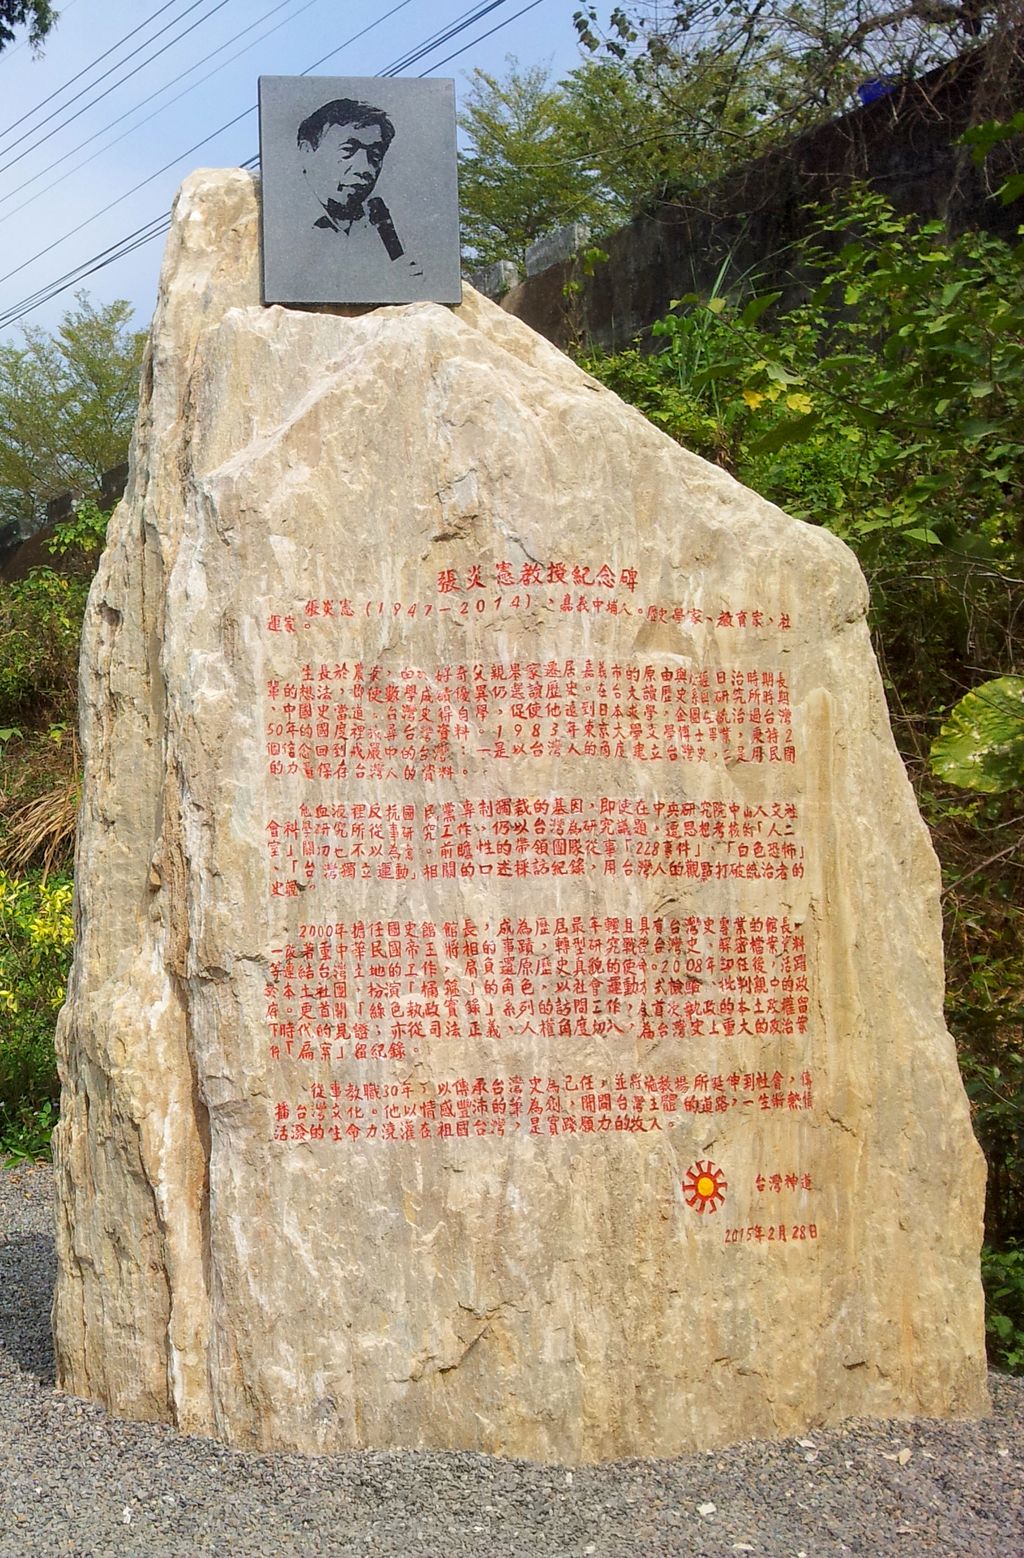 張炎憲教授紀念碑
張炎憲(1947-2014)、嘉義中埔人。歷史學家、教育家、社
運家。
生長於農家,由於好奇父親舉家遷居嘉義市的原由與
的想法,即使數學成績優異仍選讀歷史。在台大讀歷史系與研究所時期
、中國史當道,台灣史得自學,促使他遠到日本求學,企圖在統治過台灣
50年的國度裡找尋台灣資料。1983年東京大學文學博士畢業,秉持2
個信念回到戒嚴中的台灣:一是以台灣人的角度建立台灣史,二是用民間
的力量保存台灣人的資料。
他血液裡反抗國民黨專制獨裁的基因,即使在中央研究院中山人文社
會科學研究所從事研究工作,仍以台灣為研究議題,還思想考核的「人二
室」關切也不以為意。前瞻性的帶領團隊從事「228事件」、「白色恐怖」
、「台灣獨立運動」相關的口述採訪紀錄,用台灣人的觀點打破統治者的
史觀。
2000年擔任國史館館長,成為歷屆最年輕且具有台灣史專業的館長,
著重中華民國帝王將相的事蹟,轉型研究戰後台灣史、解密檔案資料
等連結台灣土地的工作,肩負還原歷史真貌的使命。2008年卸任後,活躍
於本土社團,扮演「桶箍」的角色,以社會運動方式檢驗、批判觀中的政
府。更首開「綠色執政實錄」系列的訪問工作,為首次執政的本土政權留
下時代的見證;亦從司法正義、人權角度切入,為台灣史上重大的政治案
件「扁案」留紀錄。
從事教職30年,以傳承台灣史為己任,並將施教場所延伸到社會,傳
播台灣文化。他以情感豐沛的筆為劍,開闢台灣主體的道路,一生將熱情
活潑的生命力澆灌在祖國台灣,是實踐願力的故人。
台灣神道
2015年2月28日